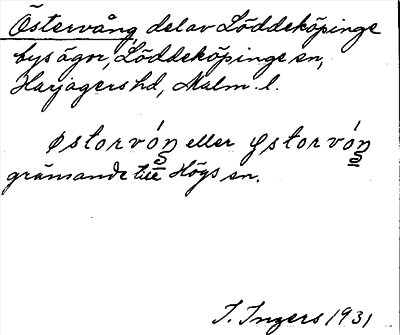 Östervång, del av Löddeköpinge
bys ägor, Löddeköpinge sn,
Harjagers hd, Malm. l.
østorvóŋ eller ystorvóŋ
gränsande till Högs sn.
I. Ingers 1931